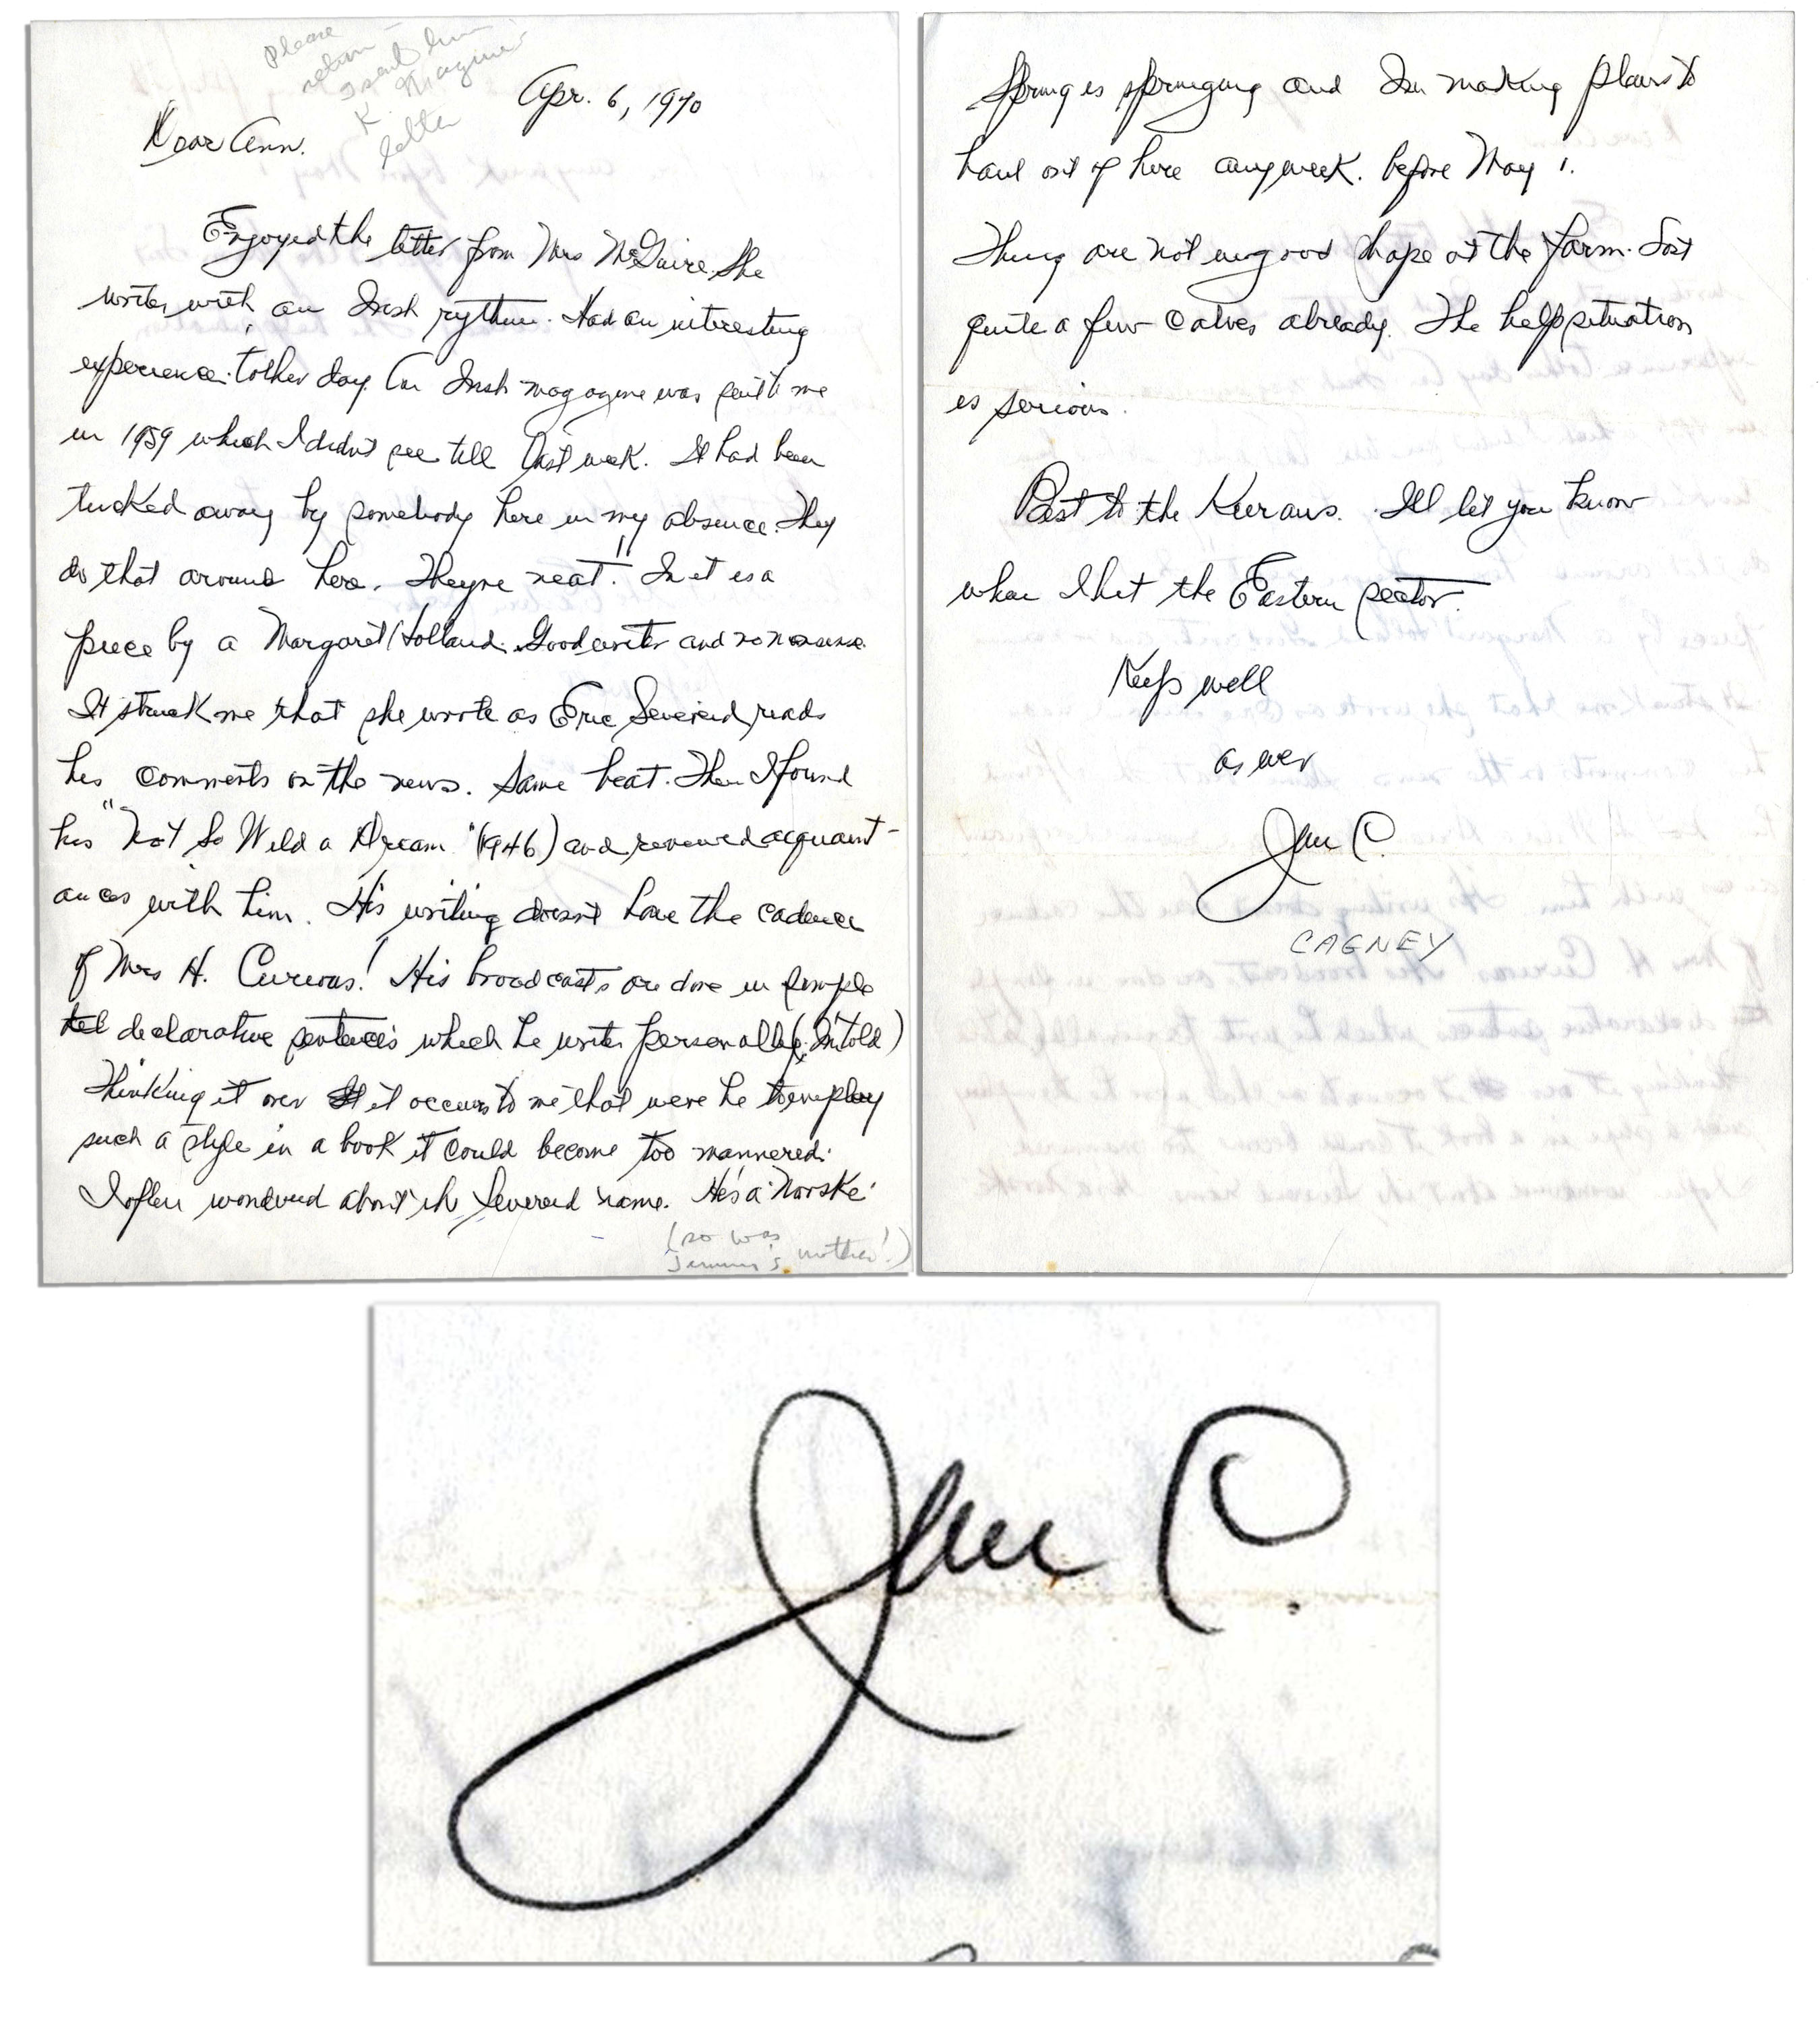 Please
return -
I sent him
K. Maguire
letter
Apr. 6, 1970
Dear Ann.
Enjoyed the letter from Mrs McGuire. She
writes with an Irish rythm. Had an interesting
experience t'other day. An Irish magazine was sent to me
in 1959 which I didn't see till last week. It had been
tucked away by somebody here in my absence. They
do that around here. Theyre neat!! In it is a
piece by a Margaret Holland. Good writer and no nonsense.
It struck me that she wrote as Eric Severeid reads
his comments on the news. Same beat. Then I found
his "Not So Wild a Dream" (1946) and renewed acquaint-
ances with him. His writing doesn't have the cadence
of Mrs H. Curious! His broadcasts are done in simple
declarative sentences which he writes personally (I'm told)
Thinking it over it occurs to me that were he to employ
such a style in a book it could become too mannered.
I often wondered about the Severeid name. He's a 'Norske'
(so was
Jimmy's mother!)
Spring is springing and I'm making plans to
haul out of here any week. before May 1.
Things are not in good shape at the farm. Lost
quite a few calves already. The help situation
is serious.
Best to the Kierans. I'll let you know
when I hit the Eastern sector.
Keep well
as ever
Jim C.
CAGNEY
Jim C.